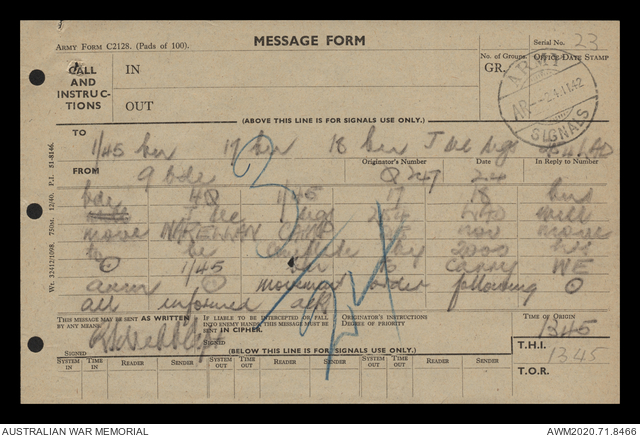 ARMY FORM C2128. (Pads of 100).
MESSAGE FORM
Serial No. 23
CALL AND INSTRUC-TIONS
IN
OUT
No. of Groups.
GR.
OFFICE DATE STAMP
ARMY
SIGNALS
(ABOVE THIS LINE IS FOR SIGNALS USE ONLY.)
TO
1/45 bn 17 bn 18 bn
FROM
9 bde
Originator's Number
Q 247
Date
24
In Reply to Number
bde HQ 1/45 17 18 bns
J sec sigs will
move NARELLAN CAMP 25 nov move
to be complete by 2000 hrs
1/45 bn to carry WE
ammn movement order following
all informed ack
THIS MESSAGE MAY BE SENT AS WRITTEN BY ANY MEANS.
IF LIABLE TO BE INTERCEPTED OR FALL INTO ENEMY HANDS THIS MESSAGE MUST BE SENT IN CIPHER.
ORIGINATOR'S INSTRUCTIONS
DEGREE OF PRIORITY
TIME OF ORIGIN
1345
SIGNED
SIGNED
(BELOW THIS LINE IS FOR SIGNALS USE ONLY.)
T.H.I. 1345
T.O.R.
SYSTEM IN
TIME IN
READER
SENDER
SYSTEM OUT
TIME OUT
READER
SENDER
SYSTEM OUT
TIME OUT
READER
SENDER
Wt. 32412/1098. 750m. 12/40. P.I. 51-8146.
AUSTRALIAN WAR MEMORIAL
AWM2020.71.8466